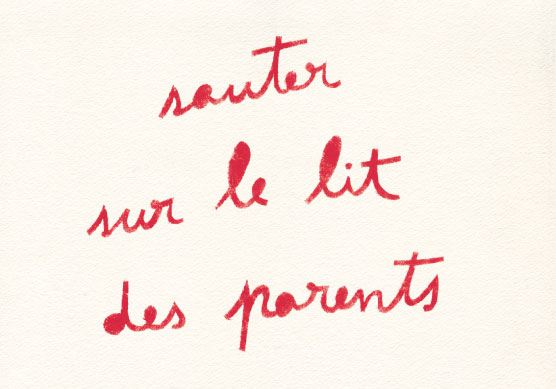 sauter
sur le lit
des parents